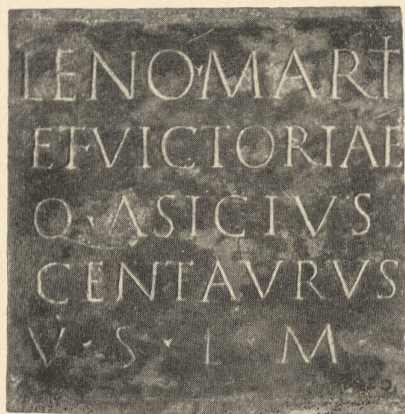 LENO·MARTI
ET·VICTORIAE
Q·ASICIVS
CENTAVRVS
V·S·L M